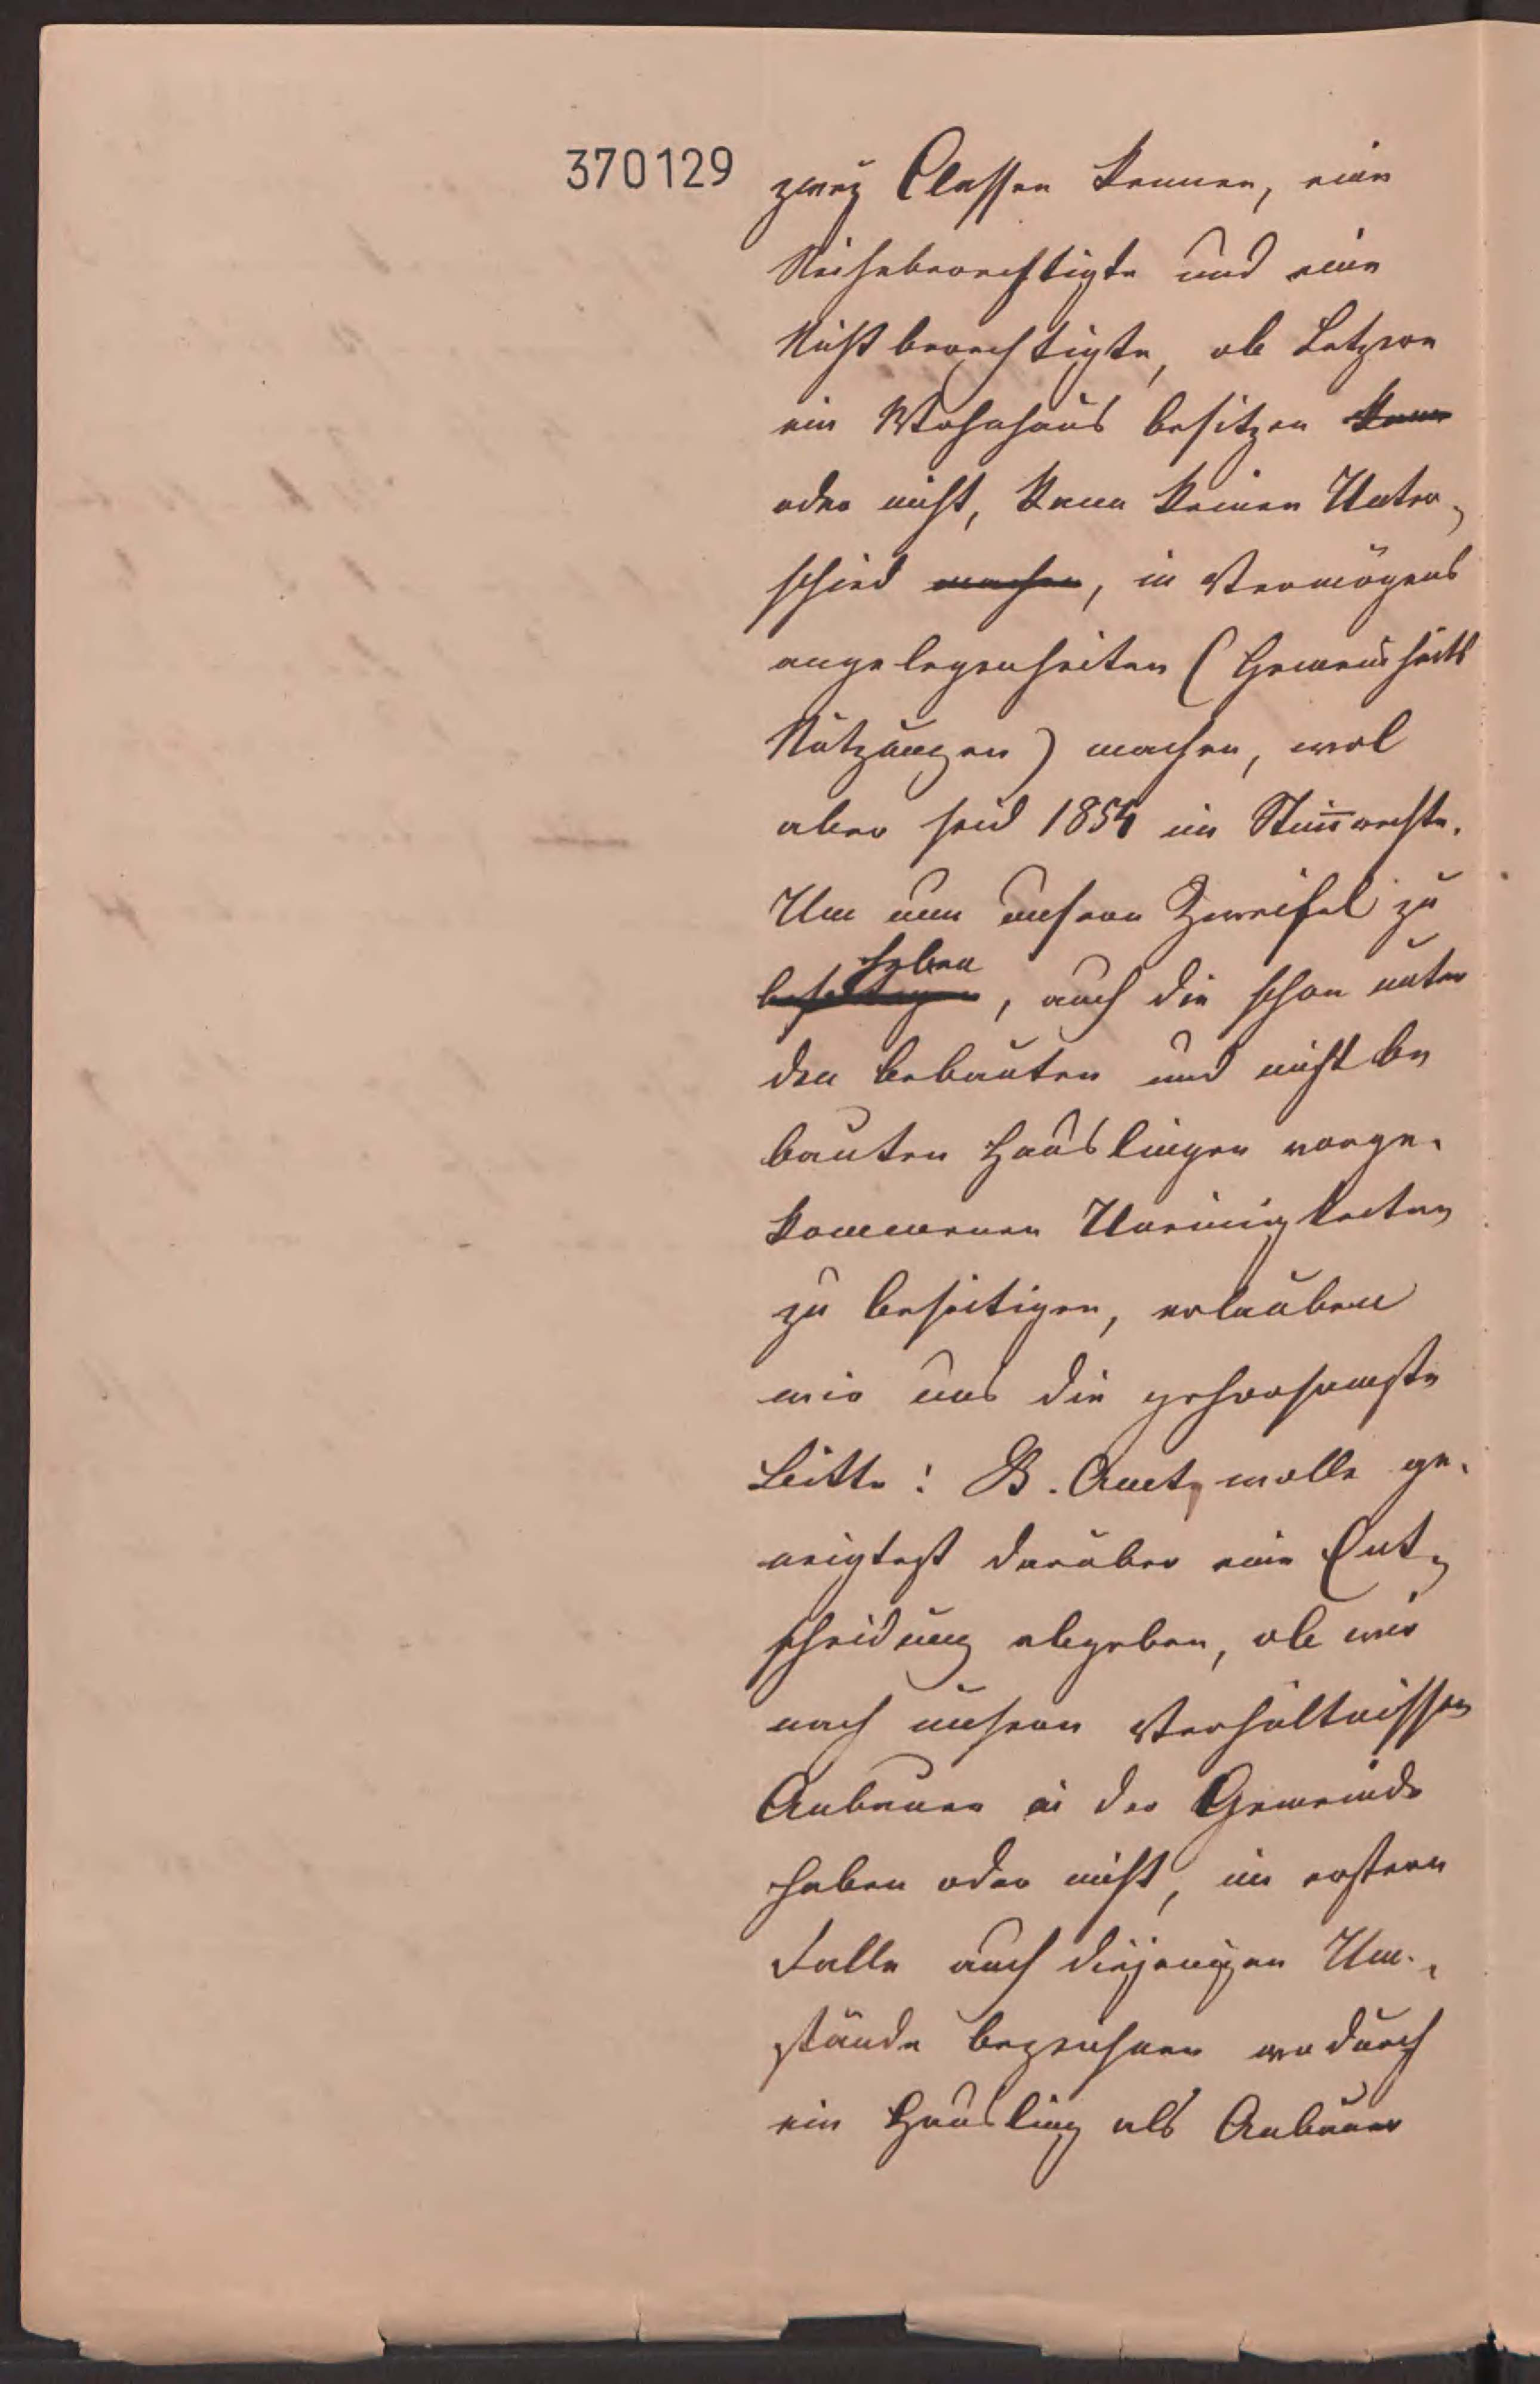 370129
zwei Classen kennen, eine
Reiheberechtigte und eine
Nichtberechtigte, ob Letzere
ein Wohnhaus besitzen kann
oder nicht, kann keinen Unter-
schied machen, in Vermögens
angelegenheiten (Gemeinheits
Nutzungen) machen, wol
aber seid 1854 im Stimrechte.
Um nun unsere Zweifel zu
heben
beseitigen, auch die schon unter
den bebauten und nicht be
bauten Häuslingen vorge-
kommenen Uneinigkeiten
zu beseitigen, erlauben
wir uns die gehorsamste
Bitte: B. Amt, wolle ge-
neigtest darüber eine Ent-
scheidung abgeben, ob wir
nach unseren Verhältnissen
Anbauer in der Gemeinde
haben oder nicht, im erstern
Falle auch diejenigen Um-
stände bezeichnen wodurch
ein Häusling als Anbauer